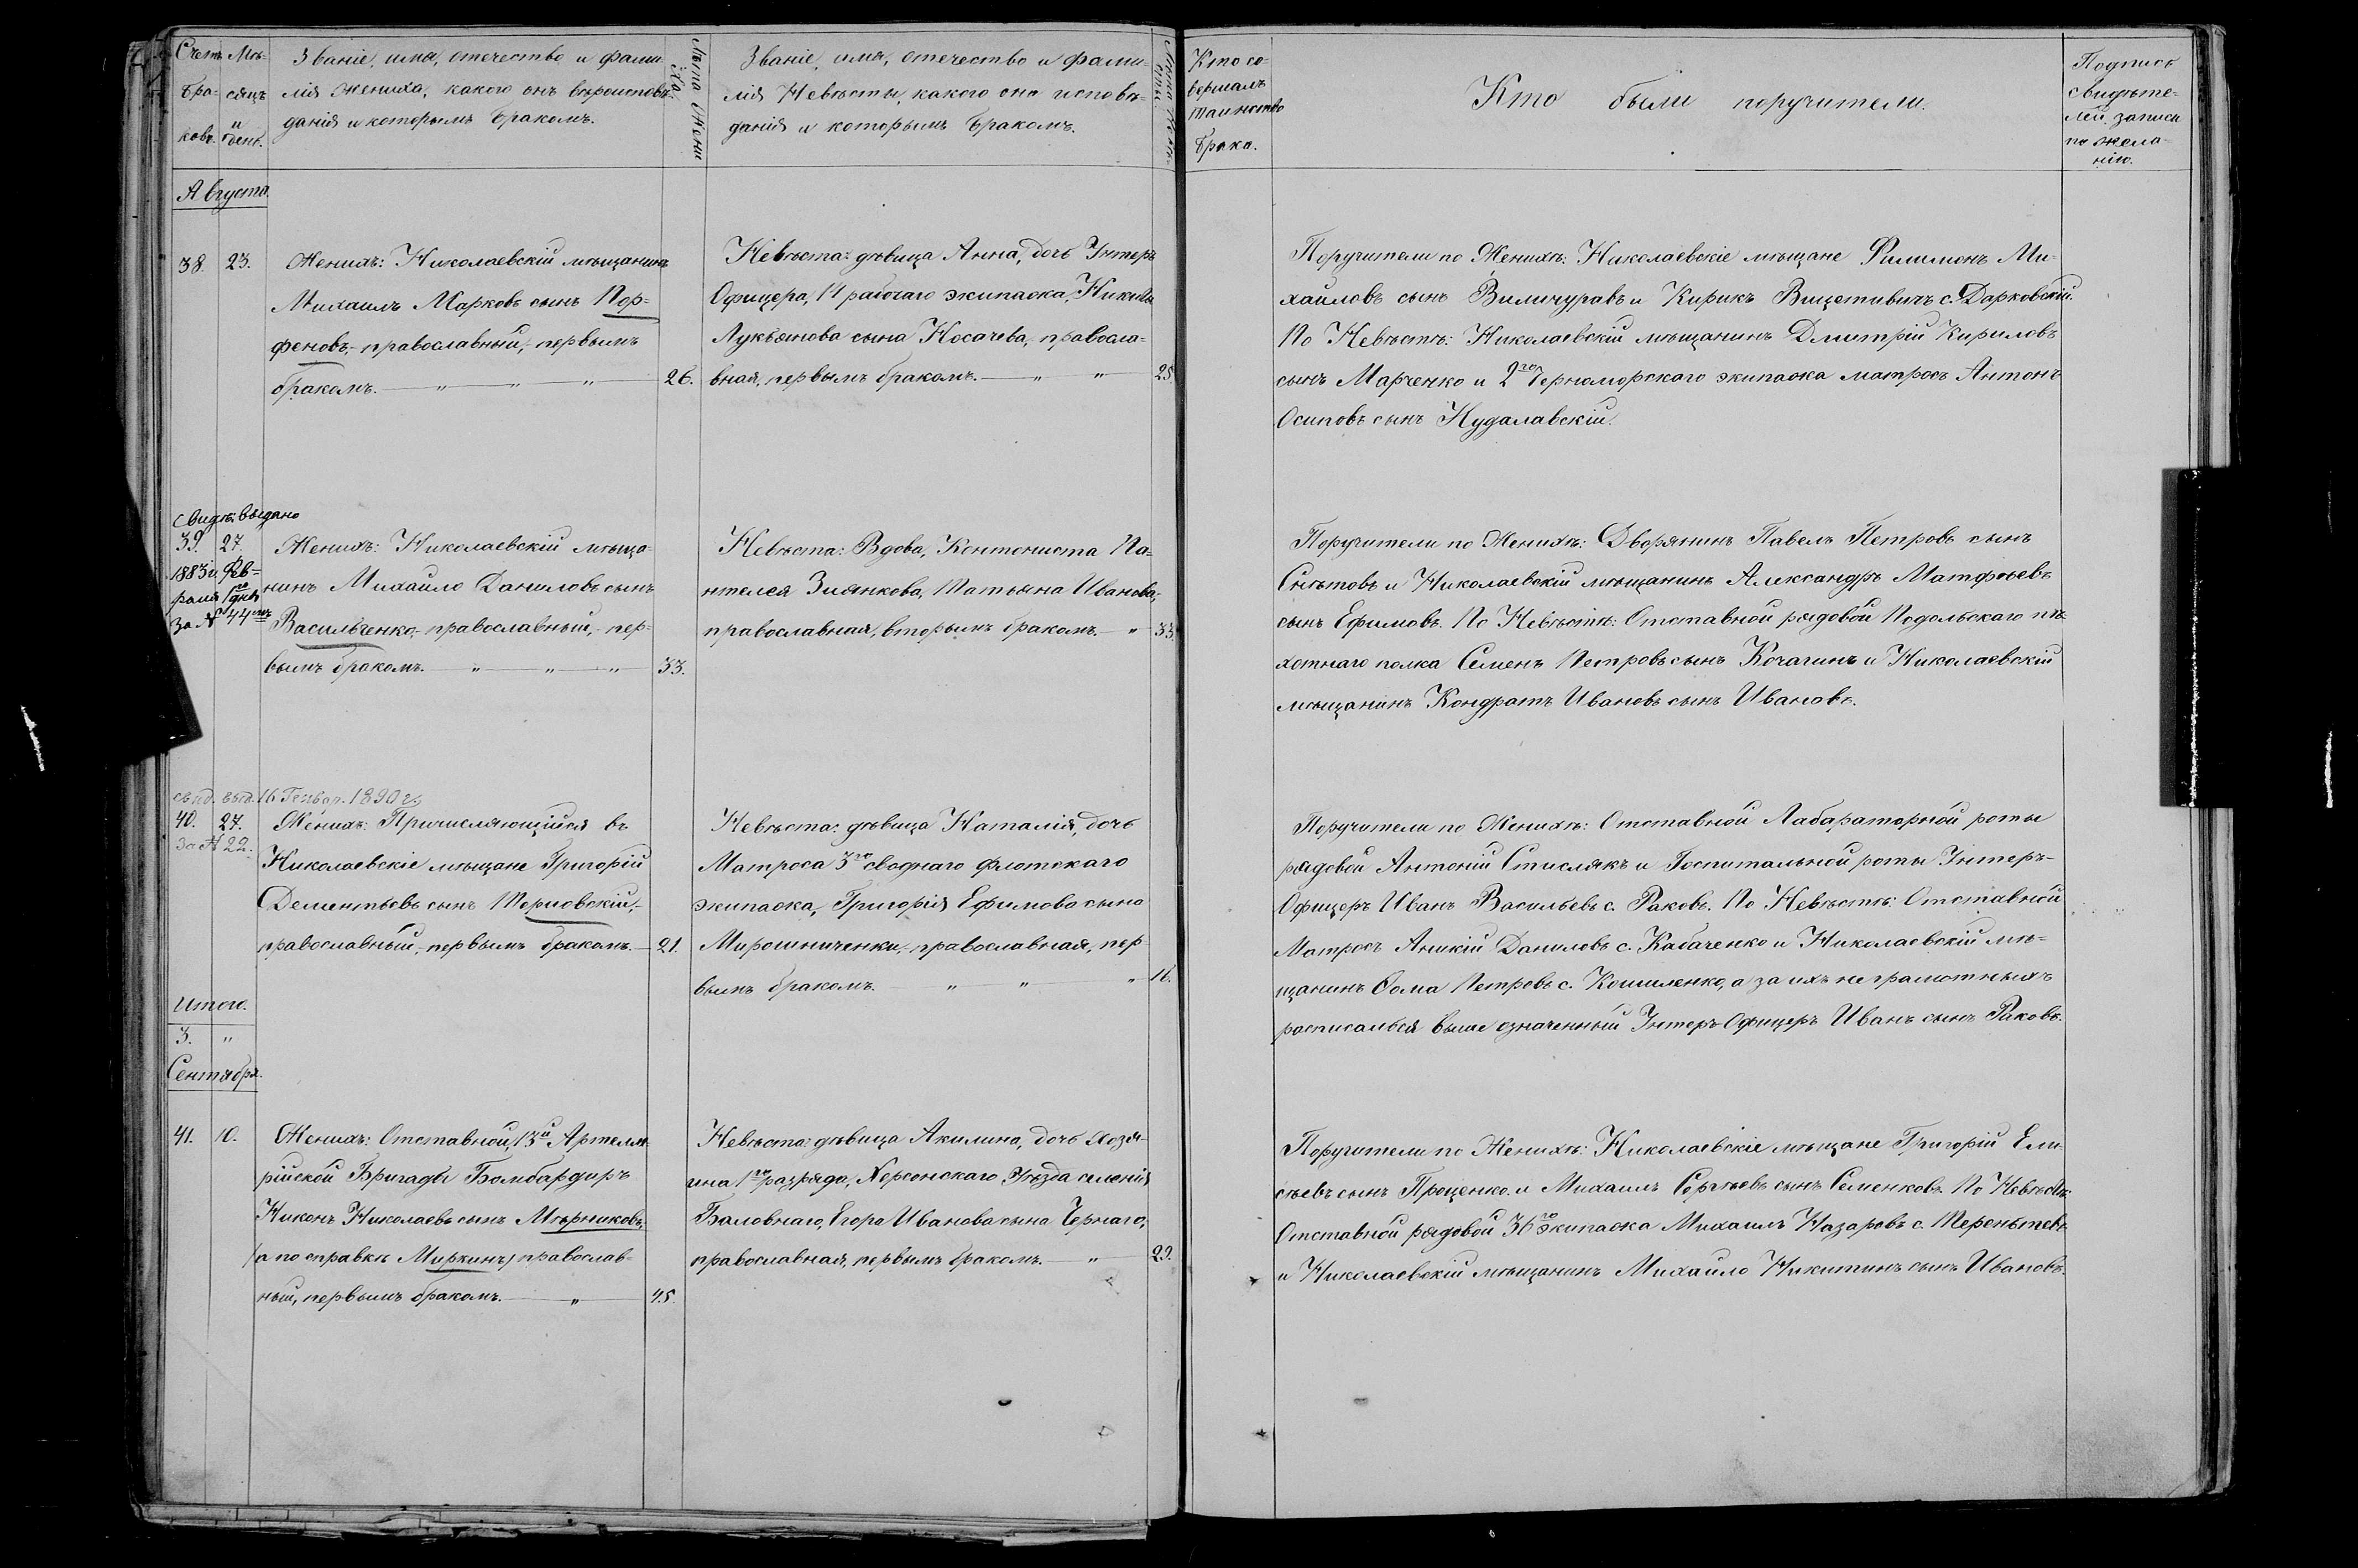 Счетъ Мѣ-
бра- сяцъ
ковъ. и день.
Званіе, имя, отечество и фами-
лія жениха, какого онъ вѣроисповѣ-
данія и которымъ бракомъ.
Лѣта Жени
ха.
Званіе, имя, отечество и фами-
лія Невѣсты, какого она исповѣ-
данія и которымъ бракомъ.
Кто со-
вершалъ
таинство
брака.
Кто были поручители.
Подпись
свидѣте-
лей записи
по жела-
нію.
Августа.
38. 23.
Женихъ: Николаевскій мѣщанинъ
Михаилъ Марковъ сынъ Пор-
феновъ, православный, первымъ
бракомъ. 26.
Невѣста: дѣвица Анна, дочь Унтеръ
Офицера, 14 рабочаго экипажа, Никиты
Лукьянова сына Носачева, правосла-
вная, первымъ бракомъ. 25.
Поручители по Женихѣ: Николаевскіе мѣщане Филимонъ Ми-
хайловъ сынъ и Кирикъ с. Дарковскій.
По Невѣстѣ: Николаевскій мѣщанинъ Дмитрій Кириловъ
сынъ Марченко и 2го Черноморскаго экипажа матросъ Антонъ
Осиповъ сынъ Кудалавскій.
Свидѣ: выдано
39. 27.
1883 г. Фев-
раля 1го дня
За № 44мъ
Женихъ: Николаевскій мѣща-
нинъ Михайло Даниловъ сынъ
Васильченко, православный, пер-
вымъ бракомъ. 33.
Невѣста: Вдова, Контониста Па-
нтелея Зиянкова, Татьяна Иванова,
православная, вторымъ бракомъ. 33.
Поручители по Женихѣ: Дворянинъ Павелъ Петровъ сынъ
Снѣтовъ и Николаевскій мѣщанинъ Александръ Матфѣевъ
сынъ Ефимовъ. По Невѣстѣ: Отставной рядовой Подольскаго пѣ-
хотнаго полка Семенъ Петровъ сынъ Кочагинъ и Николаевскій
мѣщанинъ Кондратъ Ивановъ сынъ Ивановъ.
свид. выд. 16 Генвар. 1890 г.
40. 27.
За № 22.
Женихъ: Причисляющійся въ
Николаевскіе мѣщане Григорій
Дементьевъ сынъ Терновскій,
православный, первымъ бракомъ. 21.
Невѣста: дѣвица Наталія, дочь
Матроса 3го своднаго флотскаго
экипажа, Григорія Ефимова сына
Мирошниченки, православная, пер-
вымъ бракомъ. 16.
Поручители по Женихѣ: Отставной Лабараторной роты
рядовой Антоній Стислякъ и Госпитальной роты Унтеръ-
Офицеръ Иванъ Васильевъ с. Раковъ. По Невѣстѣ: Отставной
Матросъ Аникій Даниловъ с. Кабаченко и Николаевскій мѣ-
щанинъ Ѳома Петровъ с. Кошиленко, а за ихъ не грамотныхъ
росписалься выше означенный Унтеръ Офицеръ Иванъ сынъ Раковъ.
Итого.
3. "
Сентября.
41. 10.
Женихъ: Отставной, 13й Артелле-
рійской Бригады Бомбардиръ
Никонъ Николаевъ сынъ Мѣрниковъ,
(а по справкѣ Миркинъ) православ-
ный, первымъ бракомъ. 45.
Невѣста: дѣвица Акилина, дочь хозя-
ина 1го разряда, Херсонскаго Уѣзда селенія
Баловнаго, Егора Иванова сына Чернаго,
православная, первымъ бракомъ. 29.
Поручители по Женихѣ: Николаевскіе мѣщане Григорій Ели-
сѣевъ сынъ Проценко и Михаилъ Сергѣевъ сынъ Семенковъ. По Невѣстѣ:
Отставной рядовой 36го экипажа Михаилъ Назаровъ с. Терентьевъ
и Николаевскій мѣщанинъ Михайло Никитинъ сынъ Ивановъ.